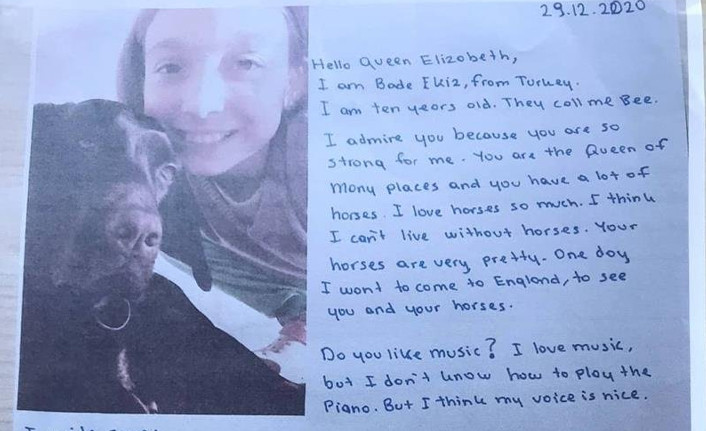 29.12.2020
Hello Queen Elizabeth,
I am Bade Ekiz, from Turkey.
I am ten years old. They call me Bee.
I admire you because you are so
strong for me. You are the Queen of
many places and you have a lot of
horses. I love horses so much. I think
I can't live without horses. Your
horses are very pretty. One day
I want to come to England, to see
you and your horses.
Do you like music? I love music,
but I don't know how to play the
Piano. But I think my voice is nice.